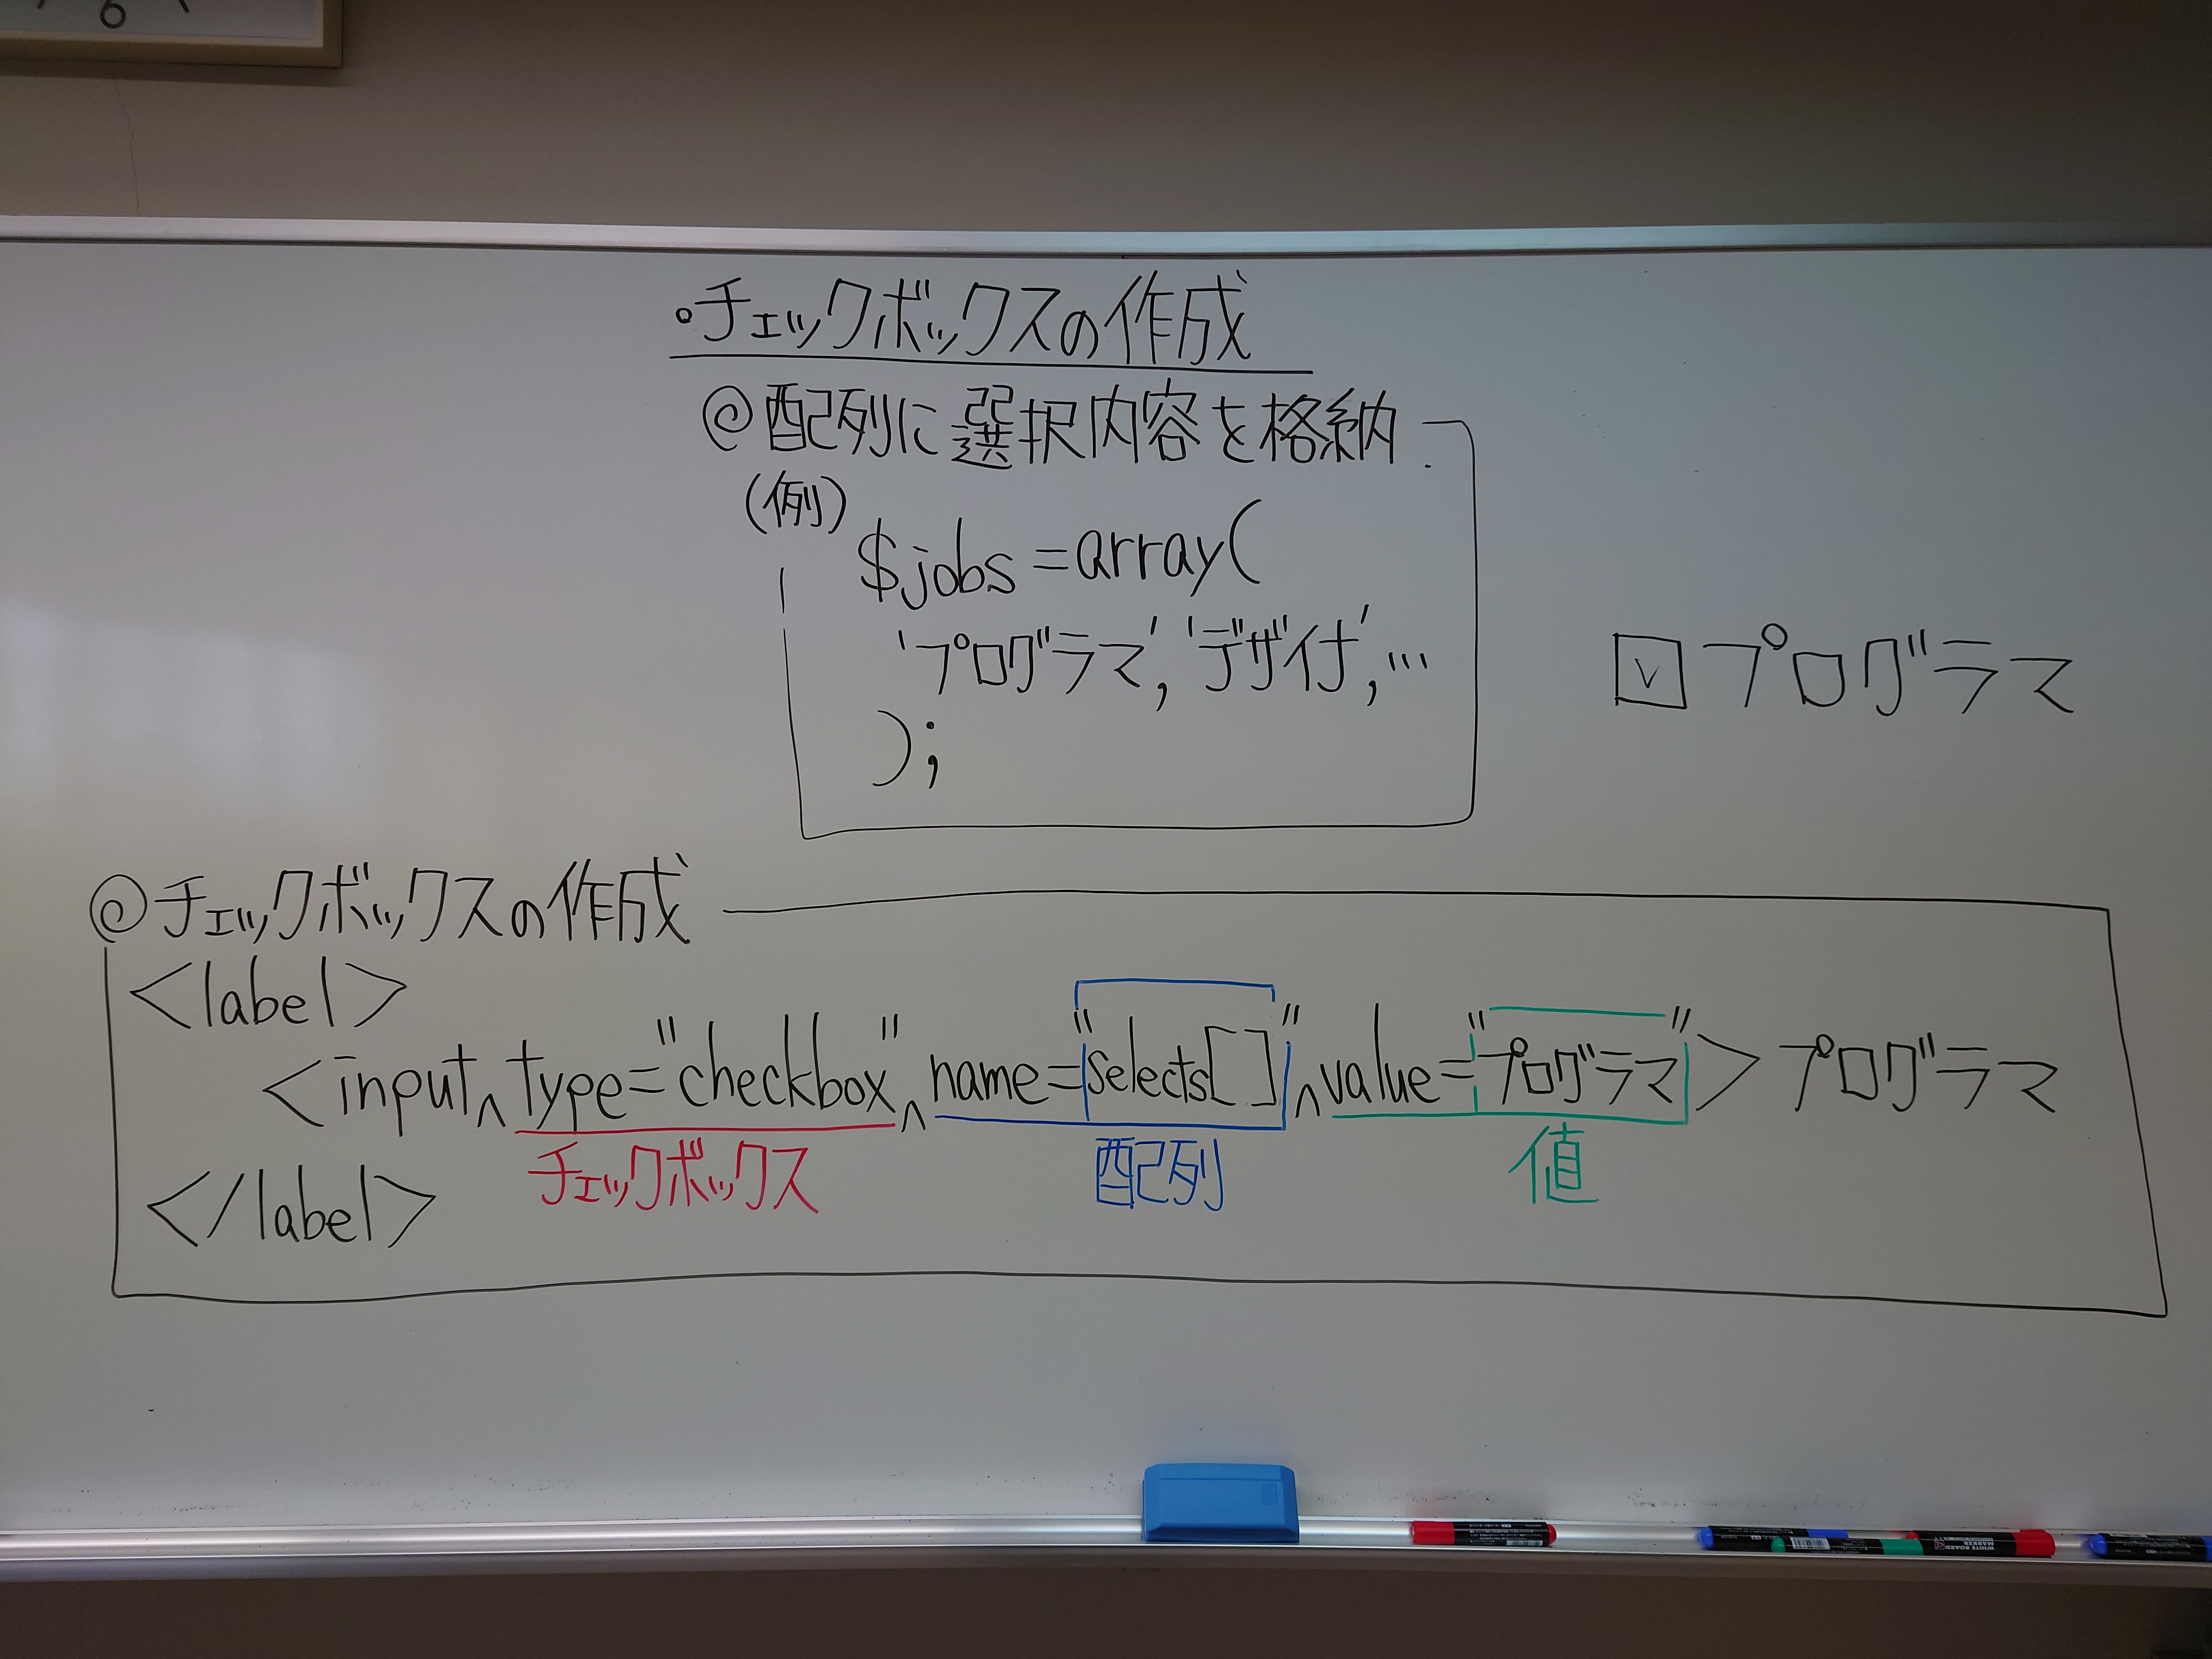 6
・チェックボックスの作成
@配列に選択内容を格納
(例)
$jobs=array(
'プログラマ','デザイナ',…
);
☑プログラマ
@チェックボックスの作成
<label>
<input^type="checkbox"^name="selects[]"^value="プログラマ">プログラマ
チェックボックス 配列 値
</label>
WHITE BOARD MARKER